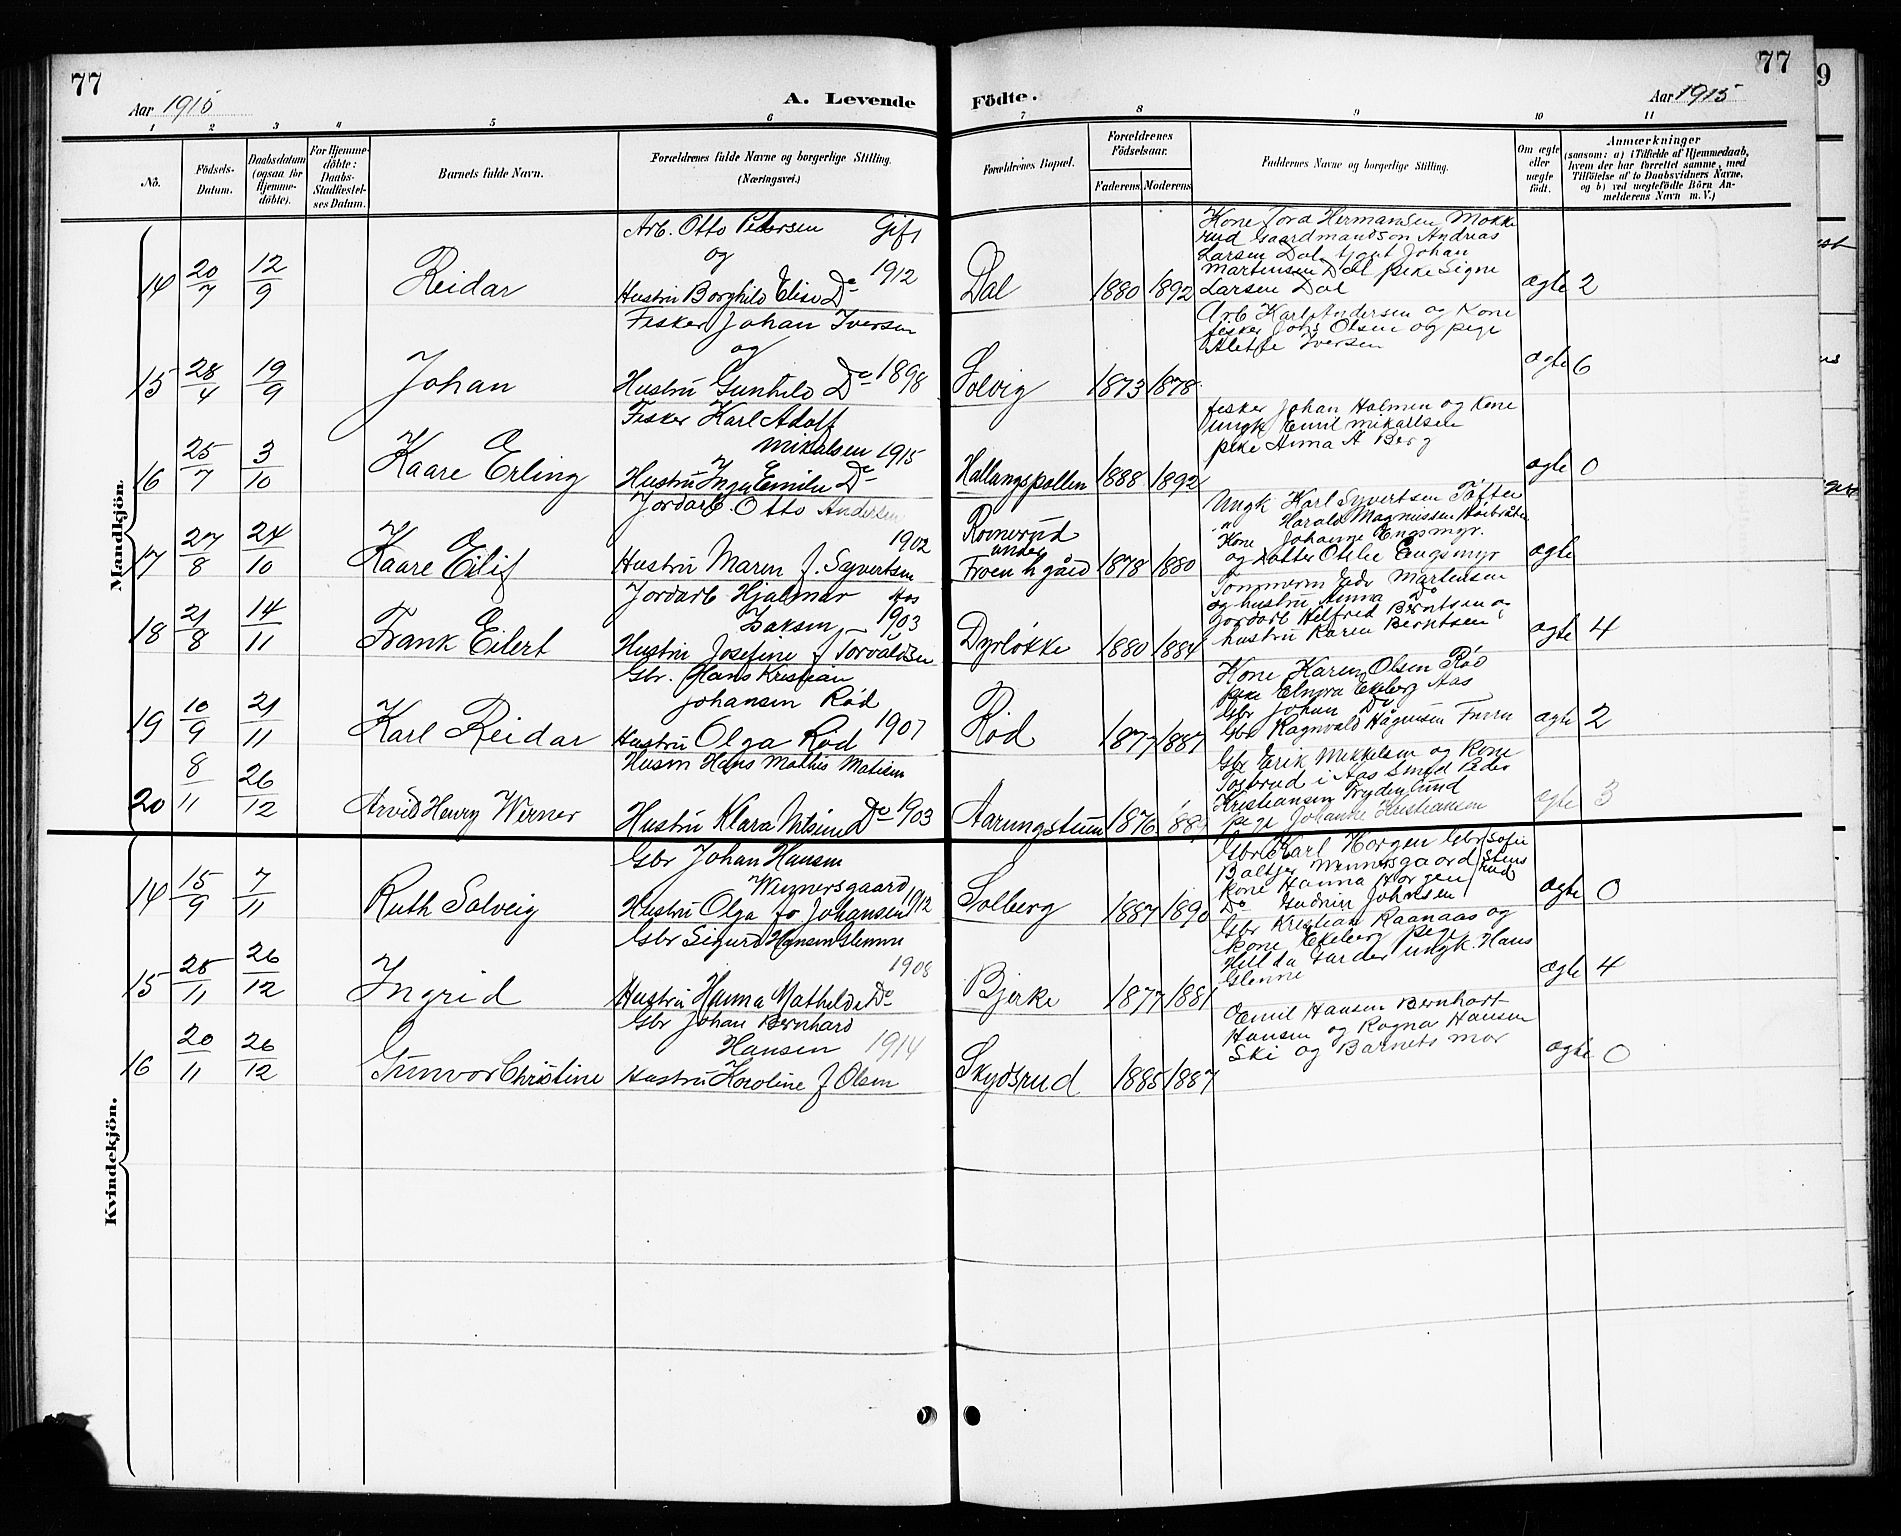 77
77
9
Aar 1915
A. Levende
Födte.
Aar 1915
1 2 3 4 5 6 7 8 9 10 11
No.
Födsels-
Datum.
Daabsdatum
(ogsaa for
Hjemme-
döbte).
For Hjemme-
döbte:
Daabs-
Stadfæstel-
ses Datum.
Barnets fulde Navn.
Forældrenes fulde Navne og borgerlige Stilling.
(Næringsvei.)
Forældrenes Bopæl.
Forældrenes
Födselsaar.
Faderens. Moderens.
Faddernes Navne og borgerlige Stilling.
Om ægte
eller
uægte
födt.
Anmærkninger
(saasom: a) i Tilfælde af Hjemmedaab,
hvem der har forrettet samme, med
Tilföielse af to Daabsvidners Navne,
og b) ved uægtefödte Börn An-
melderens Navn m. V.)
Mandkjön.
14 20/7 12/9 Reidar
Arb. Otto Pedersen Gift
og
Hustru Borghild Elise Do 1912
Dal 1880 1892
Kone Tora Hermansen Mokke
rud Gaardmandsön Andreas
Larsen Dal tjent Johan
Martensen Dal pike Signe
Larsen Dal
ægte 2
15 28/4 19/9 Johan
Fisker Johan Iversen
og
Hustru Gunhild Do 1898
Solvig 1873 1878
Arb Karl Andersen og Kone
fisker Johs Olsen og pige
Alette Iversen
ægte 6
16 25/7 3/10 Kaare Erling
Fisker Karl Adolf
Mikalsen 1915
Hustru Inga Emilie Do
Hallangspollen 1888 1892
fisker Johan Holmen og Kone
ungk Emil Mikallsen
pike Anna A Berg
ægte 0
17 27/8 24/10 Kaare Eilif
Jordarb. Otto Andersen
1902
Hustru Maren f. Syvertsen
Rovnerud
under
Froen h gård 1878 1880
Ungk Karl Syvertsen Tøfter
" Harald Magnussen
Kone Johanne Engsmyr.
og Datter Otelie Engsmyr
ægte
18 21/8 14/11 Frank Eilert
Jordarb Hjalmar Aas
Isaksen 1903
Hustru Josefine f Torvaldsen
Dyrløkke 1880 1884
Tømmerm Edv Martensen
og hustru Anna Do
Jordarb Helfred Berntsen og
hustru Karen Berntsen
ægte 4
19 10/9 21/11 Karl Reidar
Gbr. Hans Kristian
Johansen Rød
Hustru Olga Rød 1907
Rød 1877 1887
Kone Karen Olsen Rød
pike Elnora Ekeberg Aas
Gbr Johan Do
Gbr Ragnvald Hågensen
ægte 2
20 8/11 26/12 Arvid Henry Werner
Husm Hans Mathis Matisen
Hustru Klara Nilsine Do 1903
Aarungstuen 1876
Gbr Erik Mikkelsen og Kone
Tosbrud i Aas Smed Peder
Kristiansen Frydenlund
pige Johanne Kristiansen
ægte 3
Kvindekjön.
14 15/9 7/11 Ruth Solveig
Gbr Johan Hansen
Wennersgaard
Hustru Olga fø Johansen 1912
Solberg 1887 1890
Gbr Karl Horgen Gbr Sofie
Baltzer Wennersgaard Stens
kone Hanna Horgen rud
Do Gudrun Johnsen
ægte 0
15 25/11 26/12 Ingrid
Gbr Sigurd Hansen Glenne
1908
Hustru Hanna Mathilde Do
Bjerke 1877 1881
Gbr Kristian Raanaas og
kone Ekeberg pege
Hillda Garder ungk. Hans
Glenne
ægte 4
16 20/11 26/12 Gunvor Christine
Gbr Johan Bernhard
Hansen 1914
Hustru Karoline f Olsen
Skydsrud 1885 1887
Emil Hansen Bernhart
Hansen og Ragna Hansen
Ski og Barnets mor
ægte 0